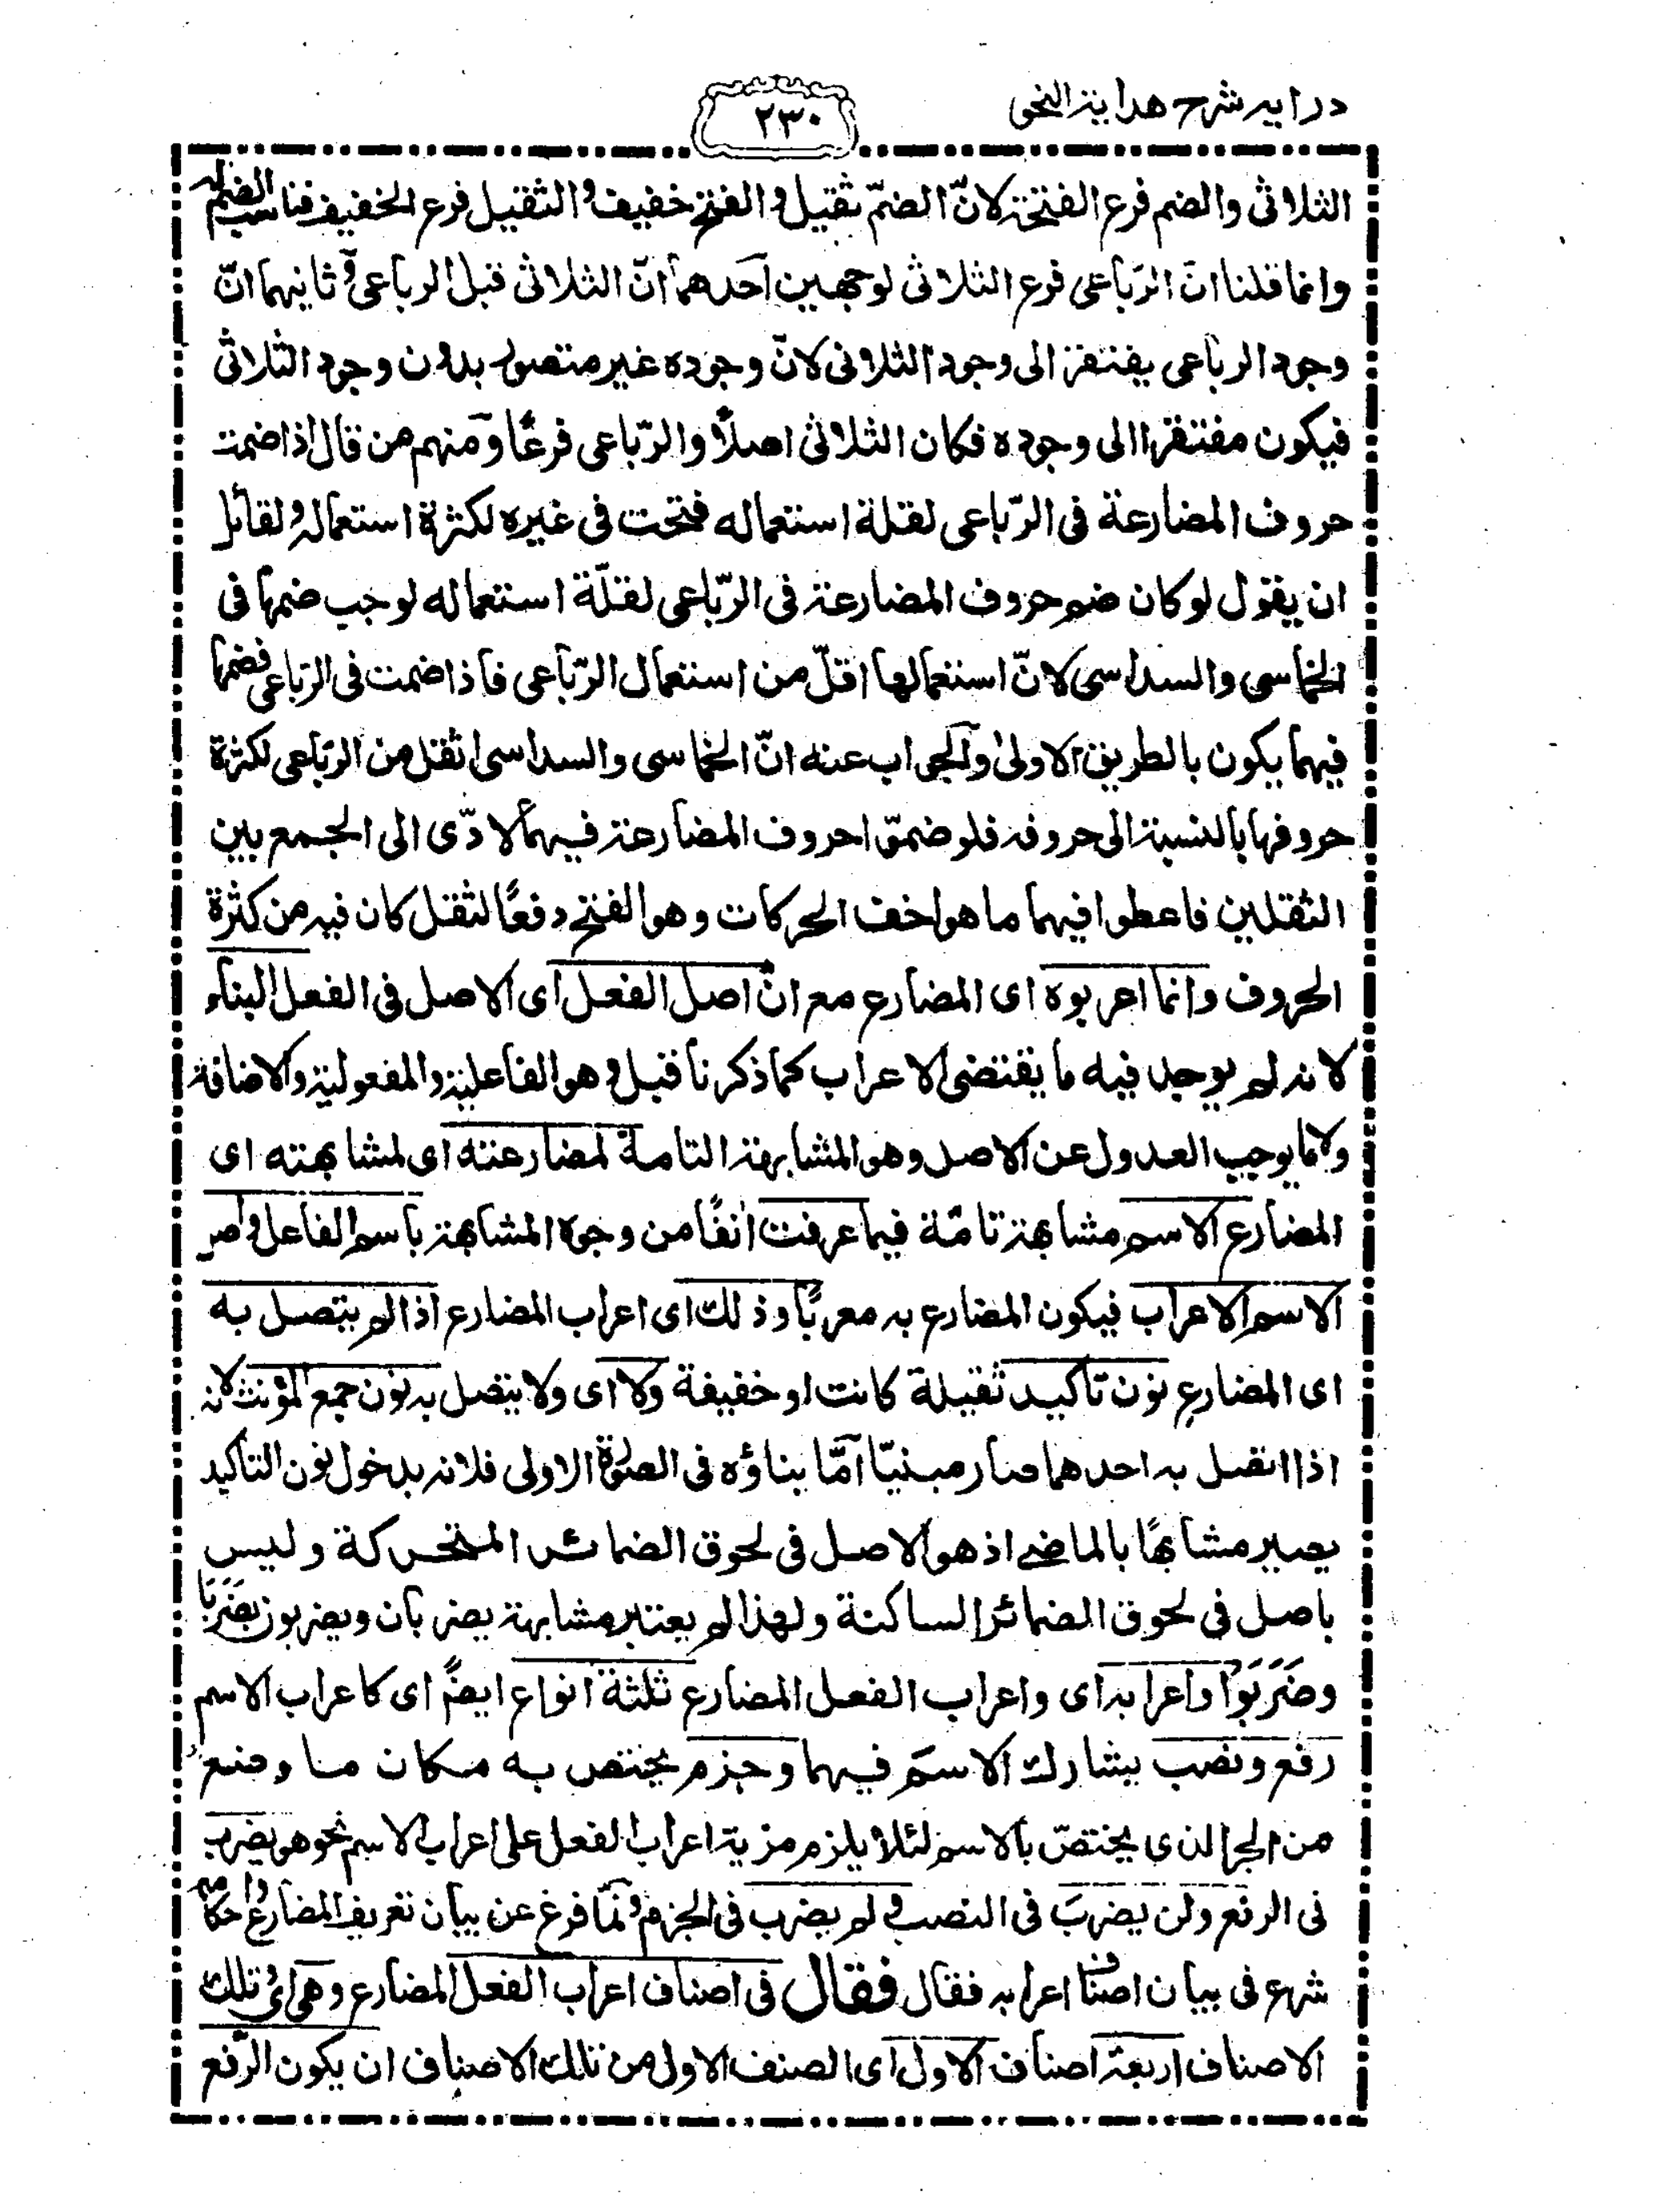 درايه شرح هداية النحو
٢٣٠
الثلاثى والضم فرع الفتحة لانّ الضمّ ثقيل والفتح خفيف والثقيل فرع الخفيف فناسب الضم له
وانما قلنا انّ الرّباعى فرع الثلاثى لوجهين احدهما انّ الثلاثى قبل الرباعى وثانيهما انّ
وجود الرباعى يفتقر الى وجود الثلاثى لانّ وجوده غير متصور بدون وجود الثلاثى
فيكون مفتقرا الى وجوده فكان الثلاثى اصلًا والرّباعى فرعًا ومنهم من قال اذا ضمت
حروف المضارعة فى الرّباعى لقلة استعماله فتحت فى غيره لكثرة استعماله ولقائل
ان يقول لو كان ضم حروف المضارعة فى الرّباعى لقلّة استعماله لوجب ضمها فى
الخماسى والسداسى لانّ استعمالها اقلّ من استعمال الرّباعى فاذا ضمت فى الرّباعى فضمها
فيهما يكون بالطريق الاولى والجواب عنه انّ الخماسى والسداسى اثقل من الرّباعى لكثرة
حروفها بالنسبة الى حروفه فلو ضموا حروف المضارعة فيهما لادّى الى الجمع بين
الثقلين فاعطوا فيهما ما هو اخف الحركات وهو الفتح دفعًا لثقل كان فيه من كثرة
الحروف وانما اعربوه اى المضارع مع انّ اصل الفعل اى الاصل فى الفعل البناء
لانه لم يوجد فيه ما يقتضى الاعراب كما ذكرنا قبل وهو الفاعلية والمفعولية والاضافة
ولا ما يوجب العدول عن الاصل وهو المشابهة التامة لمضارعته اى لمشابهته اى
المضارع الاسم مشابهة تامّة فيما عرفت انفًا من وجوه المشابهة باسم الفاعل واصل
الاسم الاعراب فيكون المضارع به معربًا وذلك اى اعراب المضارع اذا لم يتصل به
اى المضارع نون تاكيد ثقيلة كانت او خفيفة ولا اى ولا يتصل به نون جمع المؤنث لانه
اذا اتصل به احدهما صار مبنيّا امّا بناؤه فى الصورة الاولى فلانه بدخول نون التاكيد
يصير مشابهًا بالماضى اذ هو الاصل فى لحوق الضمائر المتحركة وليس
باصل فى لحوق الضمائر الساكنة ولهذا لم يعتبر مشابهة يضربان ويضربون بضَرَبَا
وضَرَبَوُا واعرابه اى واعراب الفعل المضارع ثلثة انواع ايضًا اى كاعراب الاسم
رفع ونصب يشارك الاسم فيهما وجزم يختص به مكان ما وضع
من الجر الذى يختصّ بالاسم لئلا يلزم مزية اعراب الفعل على اعراب الاسم نحو هو يضرب
فى الرفع ولن يضربَ فى النصب ولم يضرب فى الجزم ولمّا فرغ عن بيان تعريف المضارع واحكامه
شرع فى بيان اصناف اعرابه فقال فقال فى اصناف اعراب الفعل المضارع وهى اى تلك
الاصناف اربعة اصناف الاول اى الصنف الاول من تلك الاصناف ان يكون الرّفع